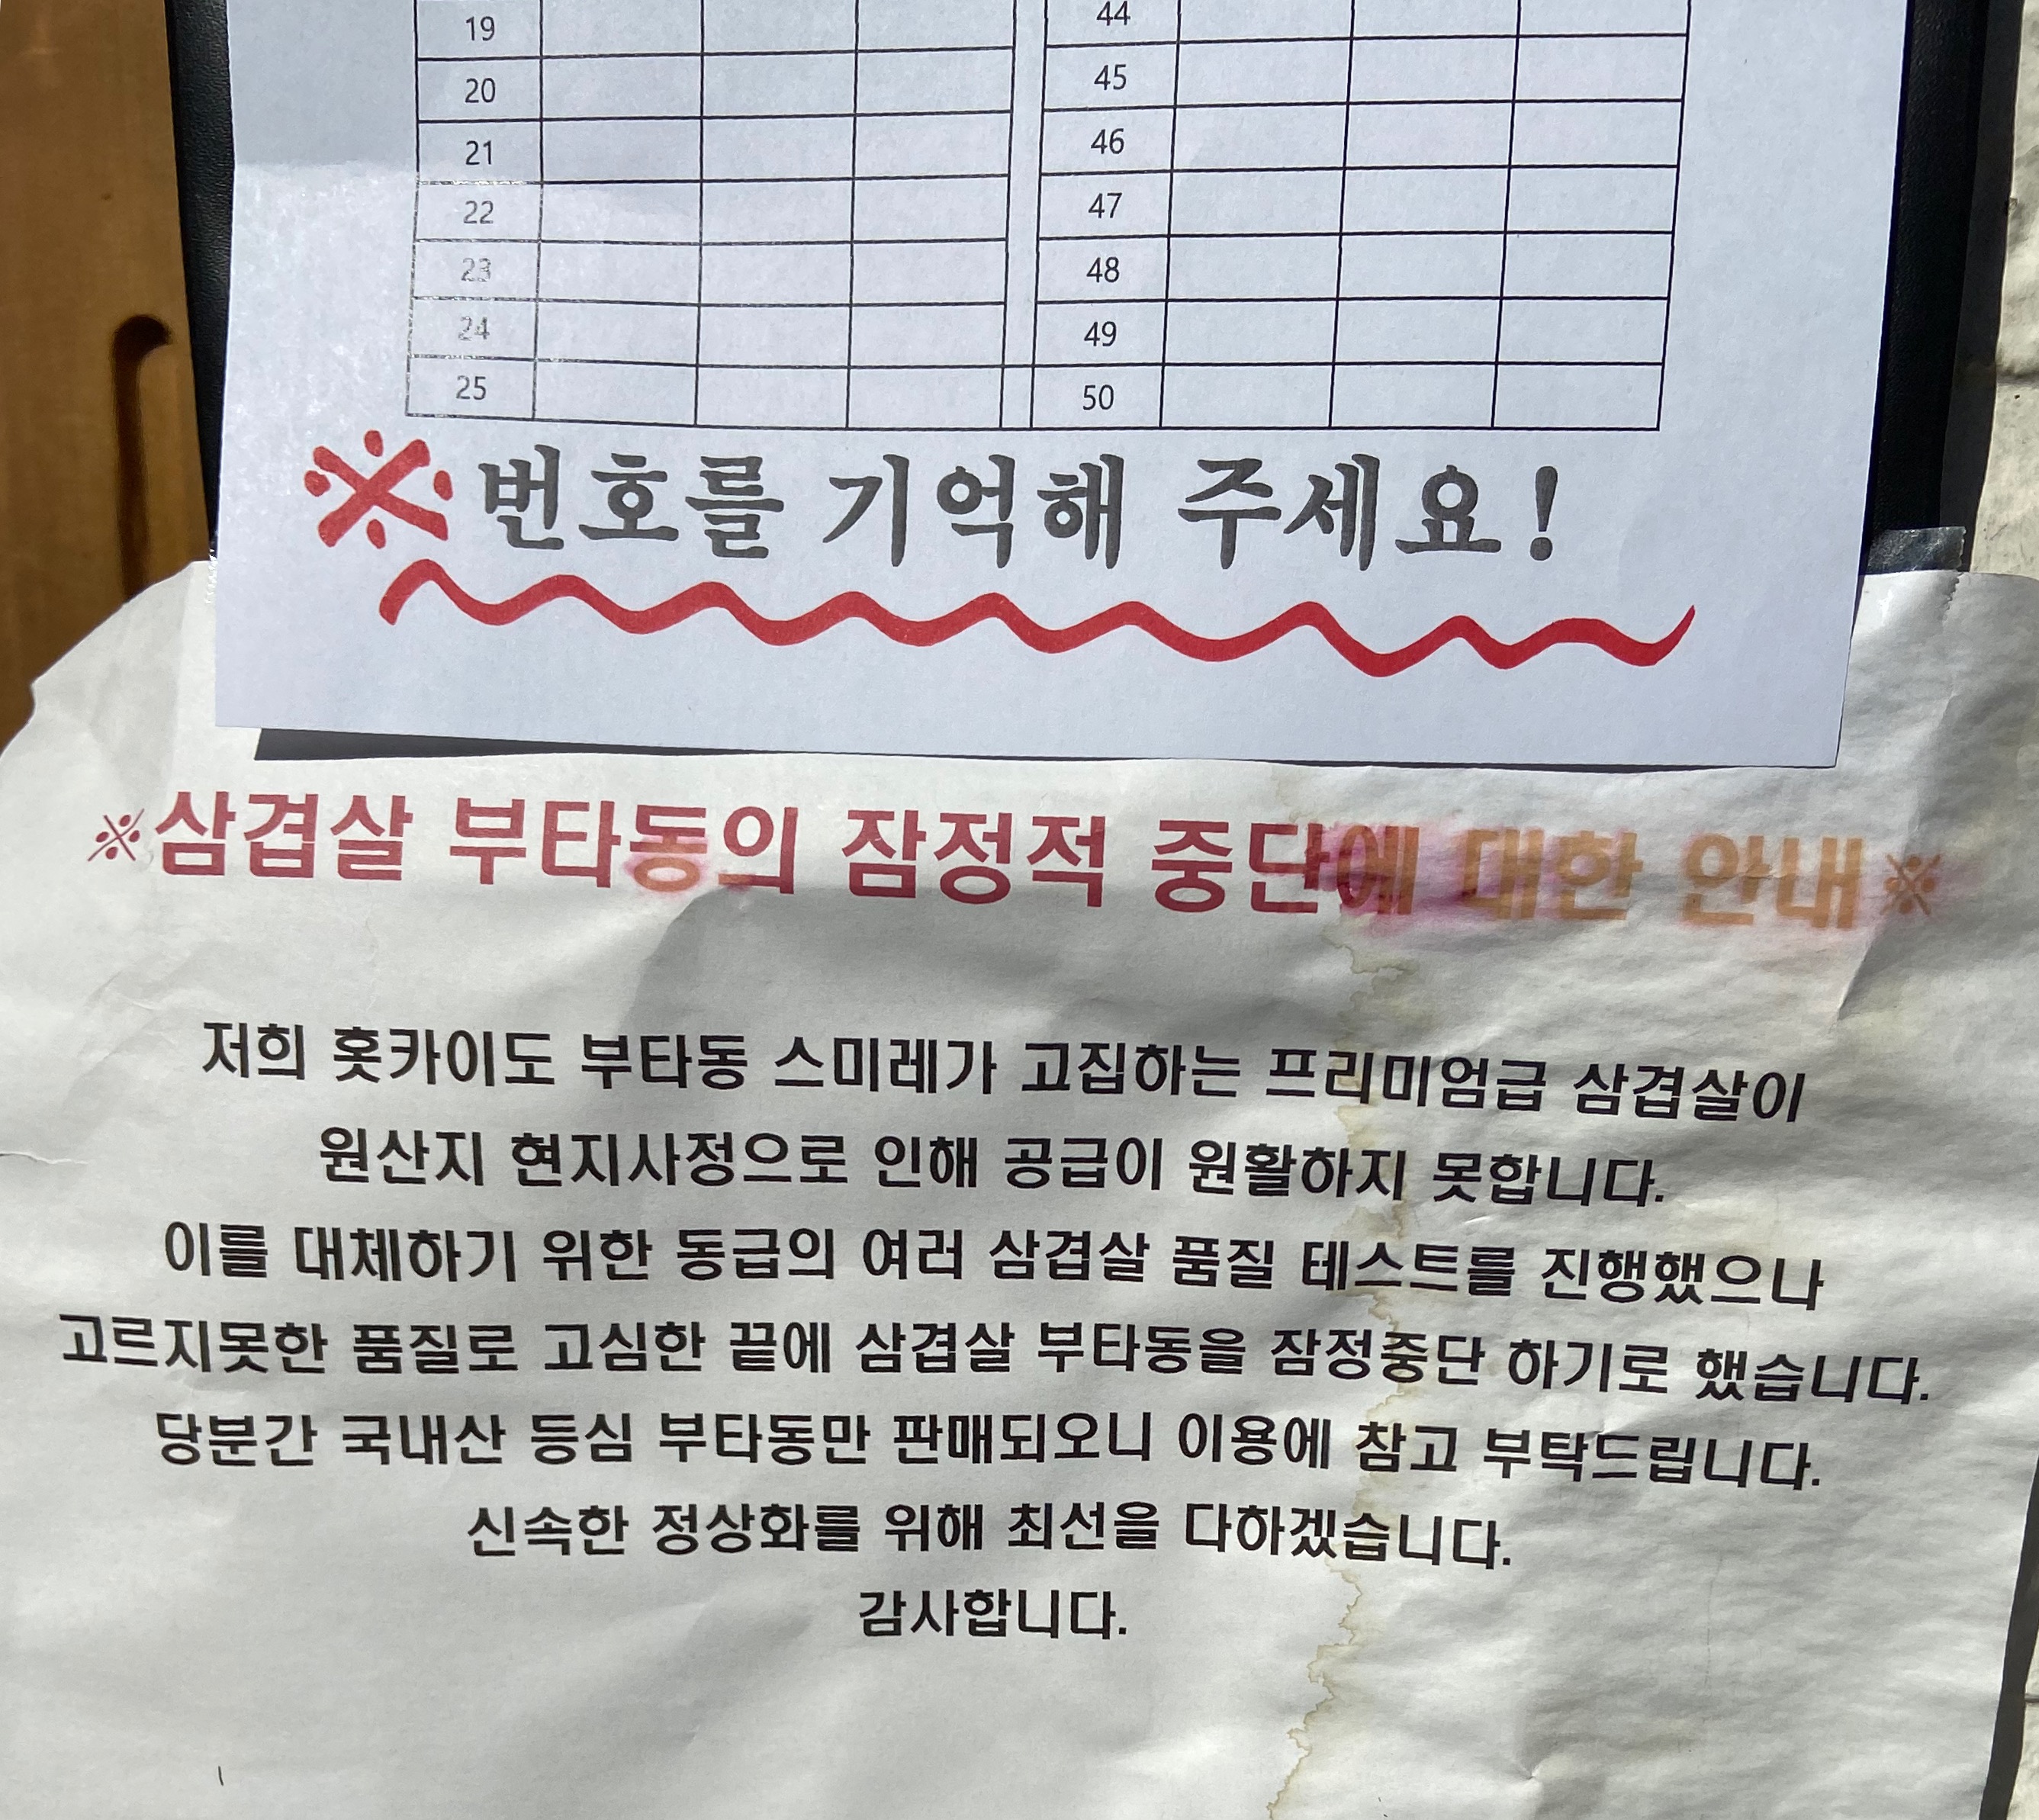 19 44
20 45
21 46
22 47
23 48
24 49
25 50
※번호를 기억해 주세요!
※삼겹살 부타동의 잠정적 중단에 대한 안내※
저희 홋카이도 부타동 스미레가 고집하는 프리미엄급 삼겹살이
원산지 현지사정으로 인해 공급이 원활하지 못합니다.
이를 대체하기 위한 동급의 여러 삼겹살 품질 테스트를 진행했으나
고르지못한 품질로 고심한 끝에 삼겹살 부타동을 잠정중단 하기로 했습니다.
당분간 국내산 등심 부타동만 판매되오니 이용에 참고 부탁드립니다.
신속한 정상화를 위해 최선을 다하겠습니다.
감사합니다.